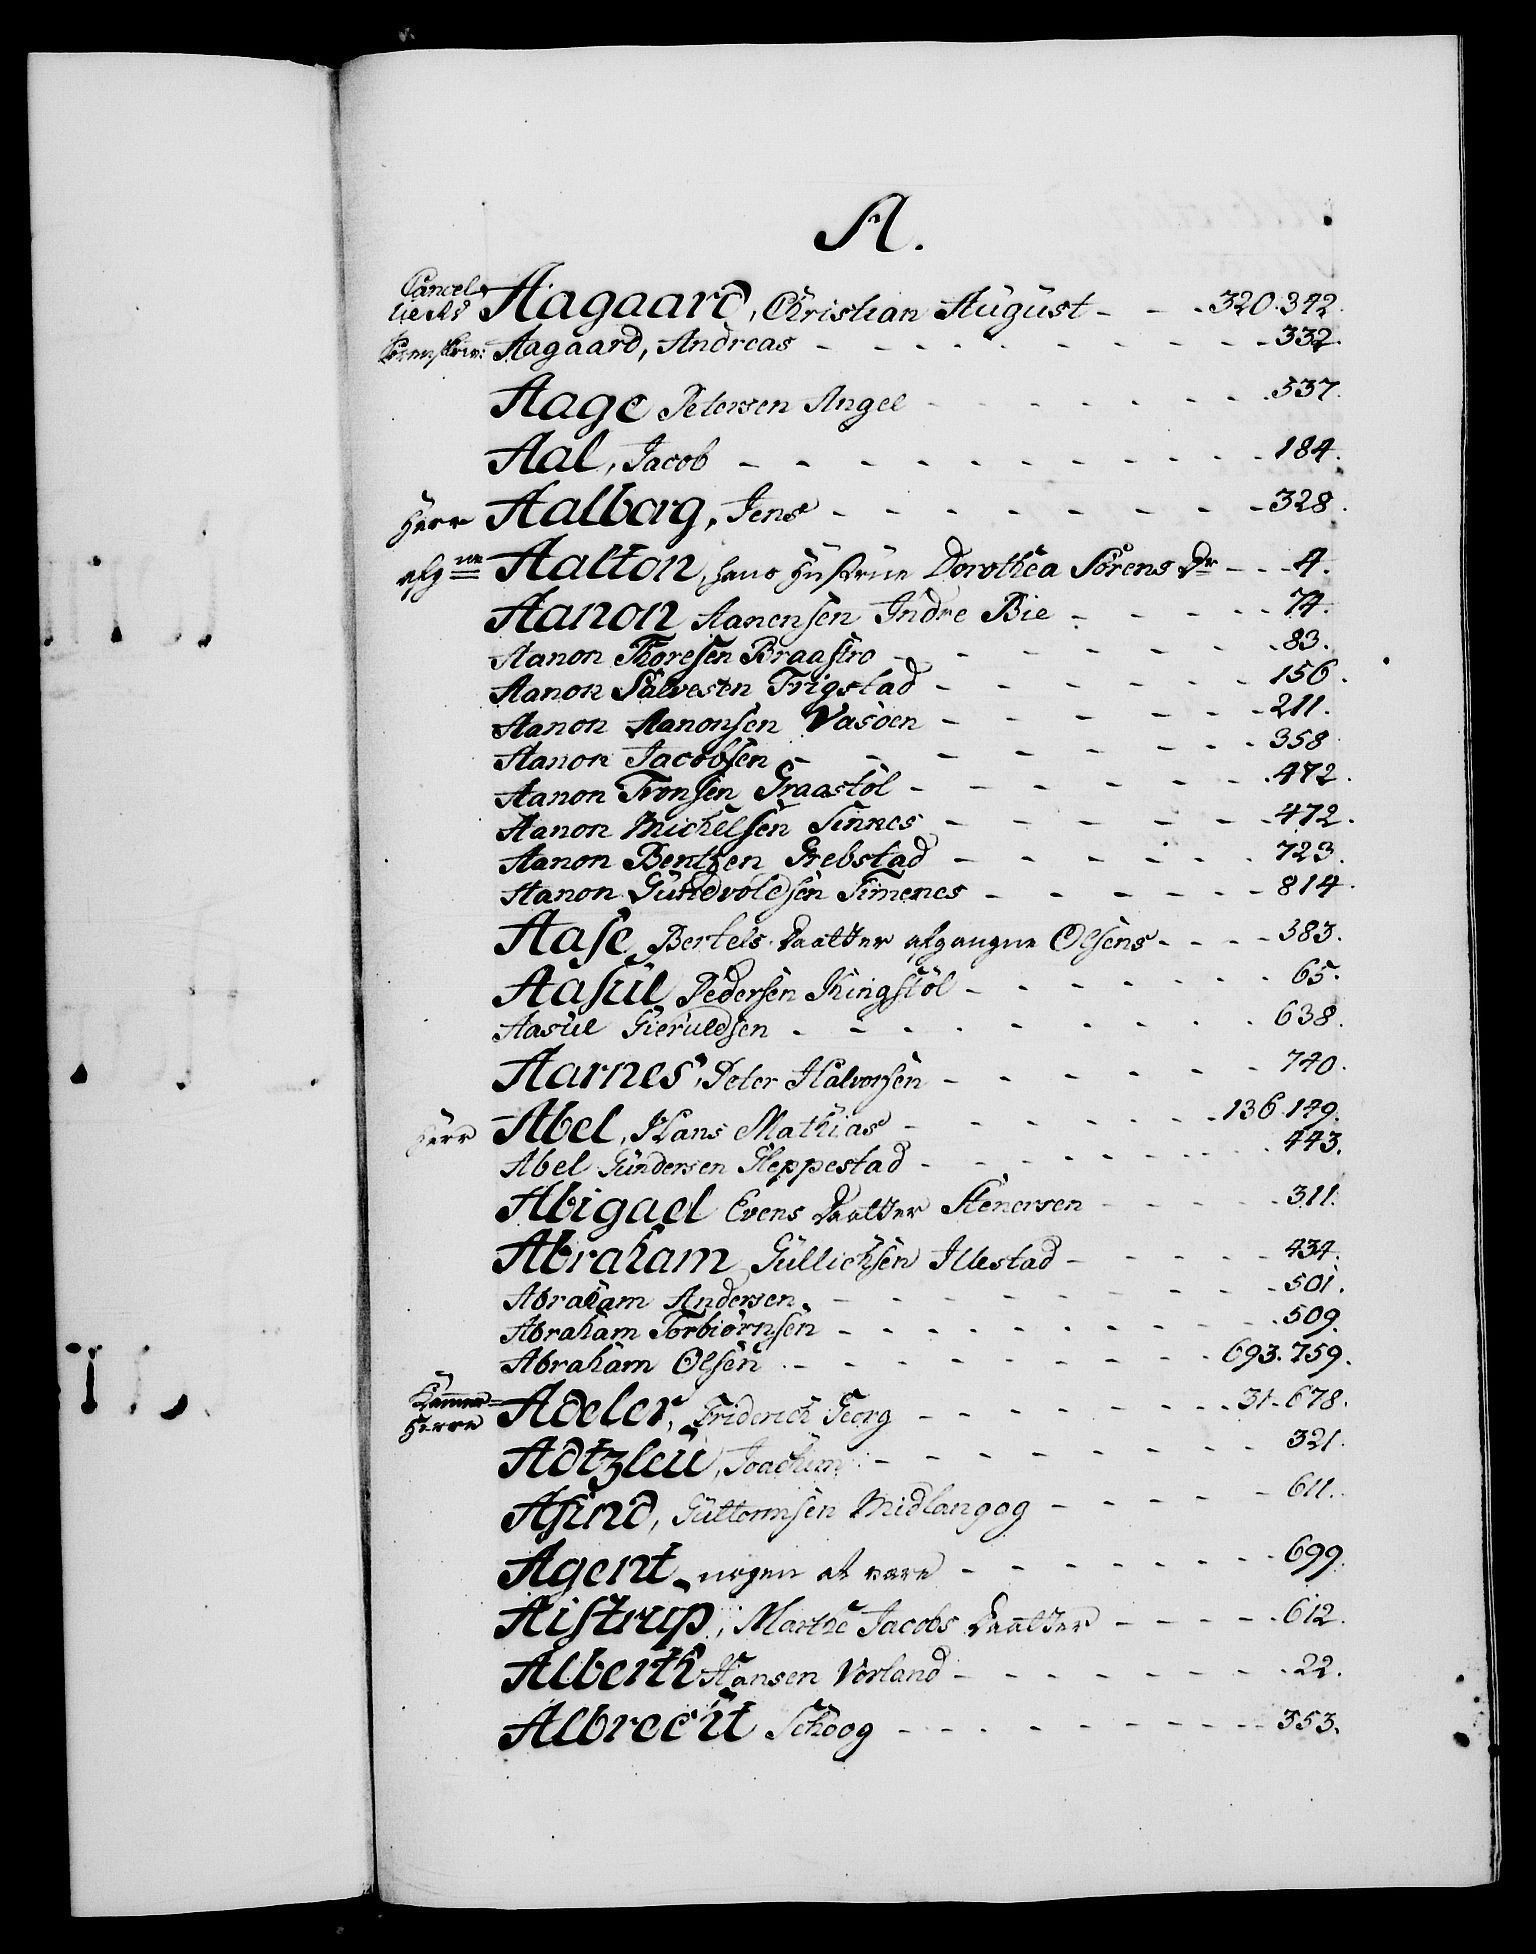 A.
Cancel-
lie Rd Aagaard, Christian August - - - 320. 342.
Aagaard, Andreas - - - 332.
Aage Petersen Angel - - - 537.
Aal, Jacob - - - 184.
Herr Aalborg, Jens - - - 328.
afg ne Aalton, hans Hustrue Dorothea Sörens Dr - - - 4.
Aanon Aanensen Indre Bie - - - 74.
Aanon Thoresen Braastro - - - 83.
Aanon Salvesen Trigstad - - - 156.
Aanon Aanonsen Vasöen - - - 211.
Aanon Jacobsen - - - 358
Aanon Tronsen Graastöl - - - 472.
Aanon Michelsen Sinnes - - - 472.
Aanon Bentzen Grebstad - - - 723.
Aanon Gundvoldsen Timenes - - - 814.
Aase Bertels Daatter afgangne Olsens - - - 383.
Aasul Pedersen Kringstöl - - - 65.
Aasul Gieruldsen - - - 638.
Aarnes, Peter Halvorsen - - - 740.
Herr Abel, Hans Mathias - - - 136. 149.
Abel Gundersen Heppestad - - - 443.
Abigael Evens Daatter Stenersen - - - 311.
Abraham Gullichsen Illestad - - - 434.
Abraham Andersen - - - 501.
Abraham Torbiörnsen - - - 509.
Abraham Olsen - - - 693. 759.
Kammer-
Herre Adeler, Friderich Georg - - - 31. 678.
Adtzleu, Joachim - - - 321.
Afind, Guttormsen Midlangog - - - 611.
Agent, nogen at være - - - 699.
Aistrup, Marthe Jacobs Daatter - - - 612.
Alberth Hansen Vorland - - - 22.
Albrecht Schoog - - - 353.